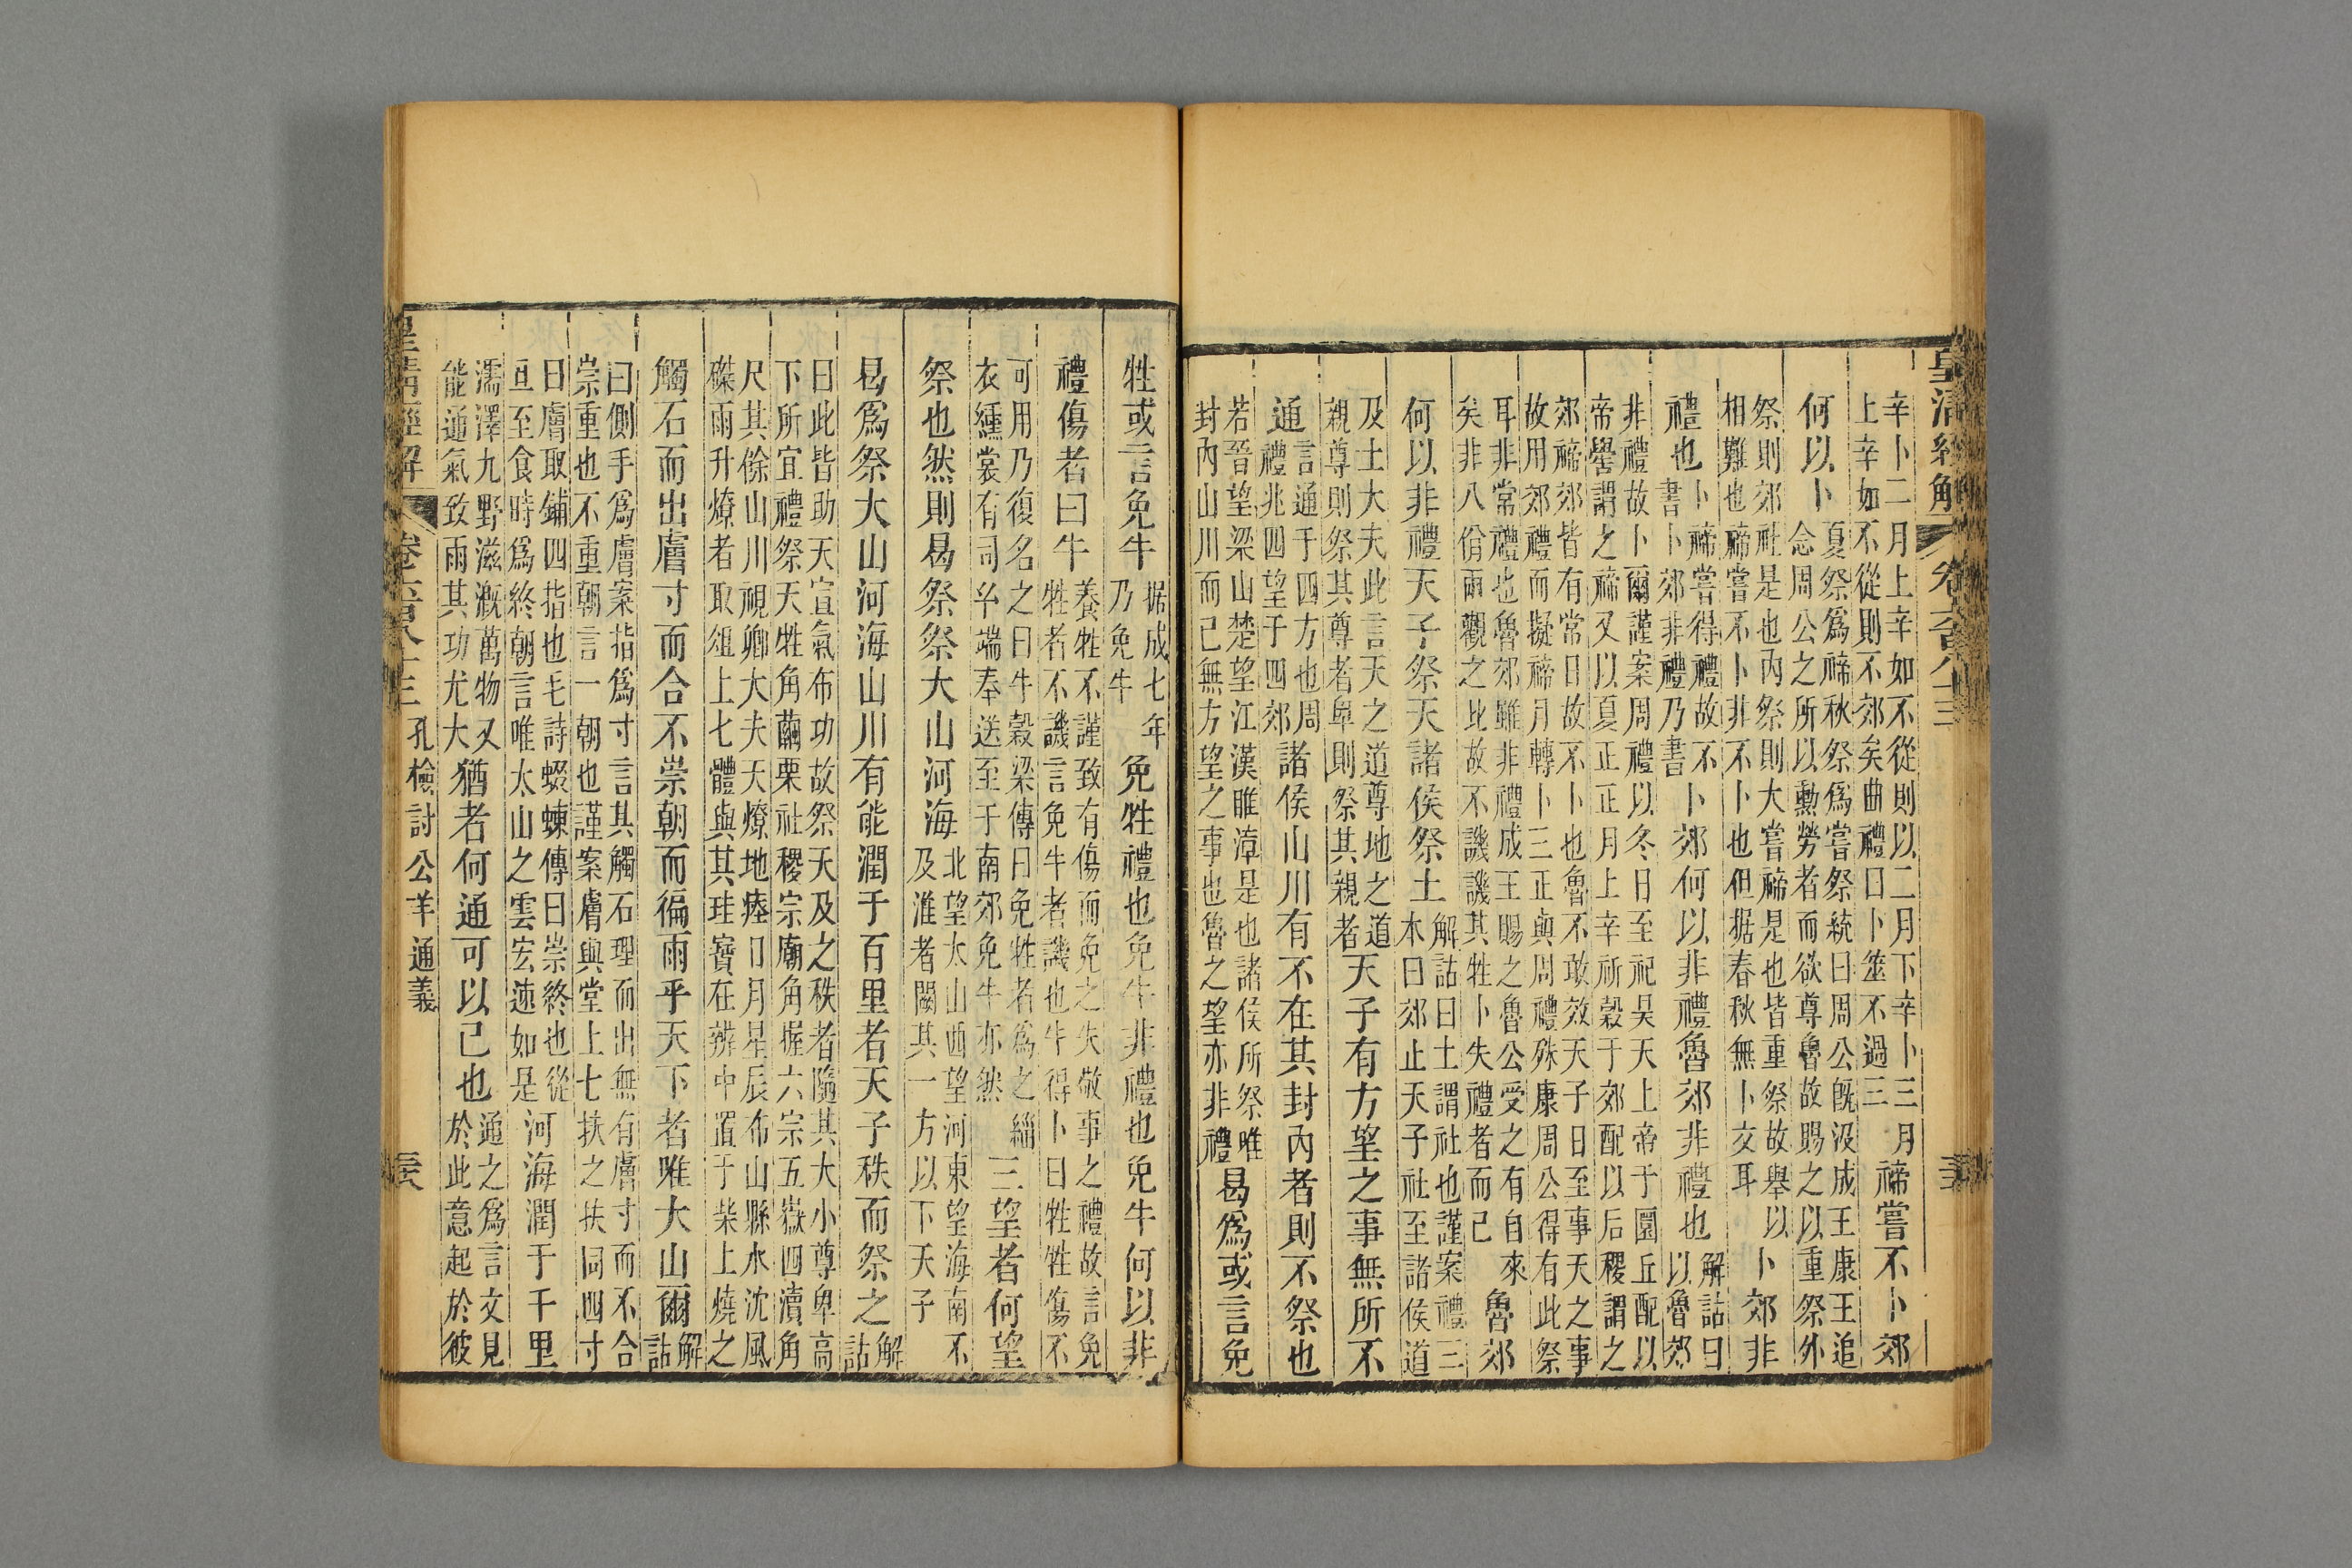 皇清經解
卷六百八十三
辛卜二月上辛如不從則以二月下辛卜三月
上辛如不從則不郊矣曲禮曰卜筮不過三
禘嘗不卜郊
何以卜
夏祭爲禘秋祭爲嘗祭統曰周公旣沒成王康王追
念周公之所以勳勞者而欲尊魯故賜之以重祭外
祭則郊社是也內祭則大嘗禘是也皆重祭故舉以
相難也禘嘗不卜非不卜也但据春秋無卜文耳
卜郊非
禮也
卜禘嘗得禮故不
書卜郊非禮乃書
卜郊何以非禮魯郊非禮也
解詁曰
以魯郊
非禮故卜爾謹案周禮以冬日至祀昊天上帝于圜丘配以
帝嚳謂之禘又以夏正正月上辛祈穀于郊配以后稷謂之
郊禘郊皆有常日故不卜也魯不敢效天子日至事天之事
故用郊禮而擬禘月轉卜三正與周禮殊康周公得有此祭
耳非常禮也魯郊雖非禮成王賜之魯公受之有自來
矣非八佾兩觀之比故不譏譏其牲卜失禮者而已
魯郊
何以非禮天子祭天諸侯祭土
解詁曰土謂社也謹案禮三
本曰郊止天子社至諸侯道
及士大夫此言天之道尊地之道
親尊則祭其尊者卑則祭其親者
天子有方望之事無所不
通
言通于四方也周
禮兆四望于四郊
諸侯山川有不在其封內者則不祭也
若晉望梁山楚望江漢睢漳是也諸侯所祭唯
封內山川而已無方望之事也魯之望亦非禮
曷爲或言免
牲或言免牛
据成七年
乃免牛
免牲禮也免牛非禮也免牛何以非
禮傷者曰牛
養牲不謹致有傷而免之失敬事之禮故言免
牲者不譏言免牛者譏也牛得卜曰牲牲傷不
可用乃復名之曰牛穀梁傳曰免牲者爲之緇
衣纁裳有司玄端奉送至于南郊免牛亦然
三望者何望
祭也然則曷祭祭大山河海
北望太山西望河東望海南不
及淮者闕其一方以下天子
曷爲祭大山河海山川有能潤于百里者天子秩而祭之
解
詁
曰此皆助天宣氣布功故祭天及之秩者隨其大小尊卑高
下所宜禮祭天牲角繭栗社稷宗廟角握六宗五嶽四瀆角
尺其餘山川視卿大夫天燎地瘞日月星辰布山縣水沈風
磔雨升燎者取俎上七體與其珪寶在辨中置于柴上燒之
觸石而出膚寸而合不崇朝而徧雨乎天下者唯大山爾
解
詁
曰側手爲膚案指爲寸言其觸石理而出無有膚寸而不合
崇重也不重朝言一朝也謹案膚與堂上七扶之扶同四寸
曰膚取鋪四指也毛詩蝃蝀傳曰崇終也從
旦至食時爲終朝言唯太山之雲宏速如是
河海潤于千里
濡澤九野滋漑萬物又
能通氣致雨其功尤大
猶者何通可以已也
通之爲言文見
於此意起於彼
皇清經解
卷六百八十三
孔檢討公羊通義